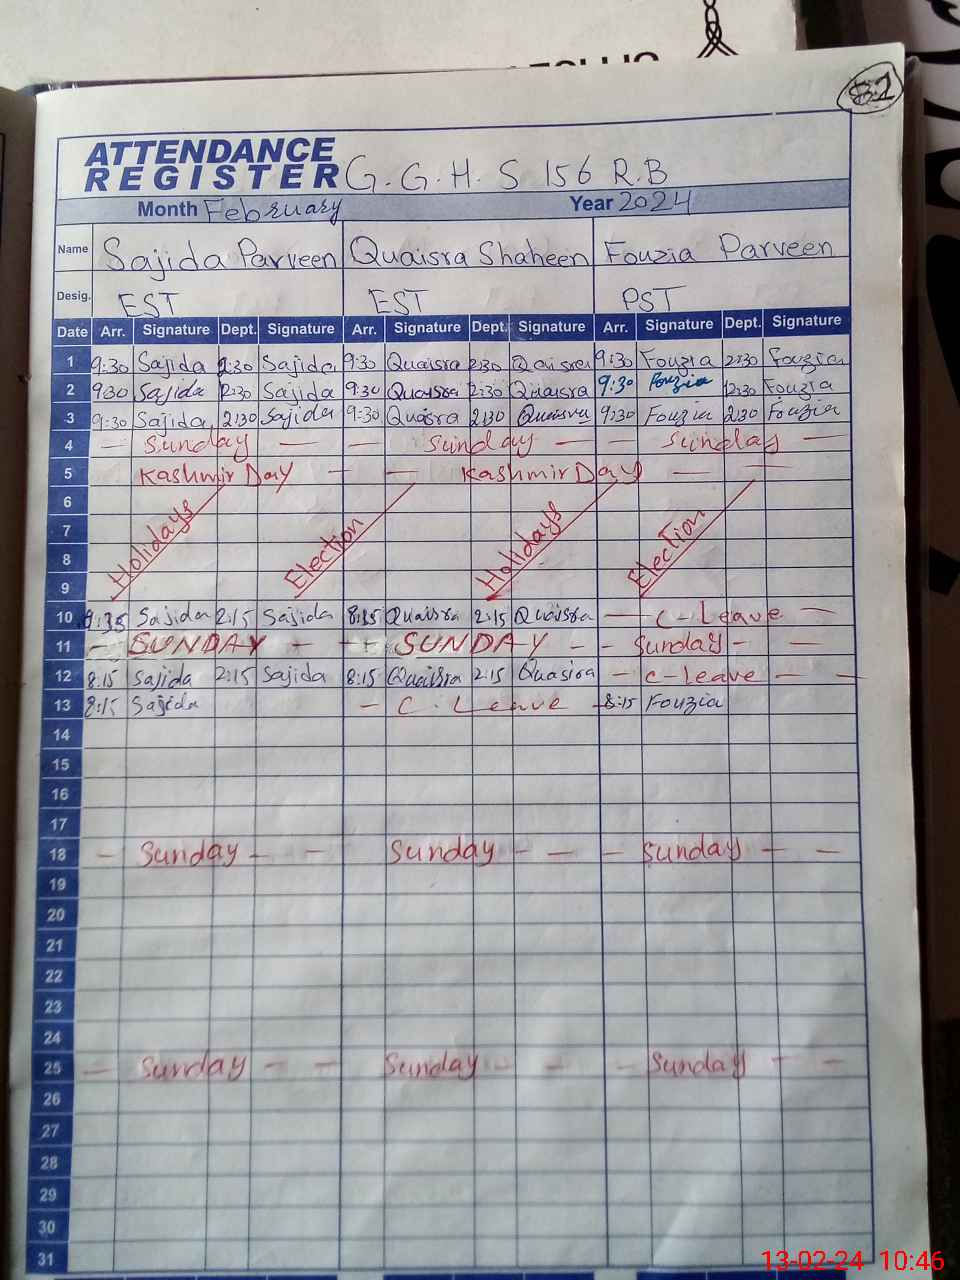 82
ATTENDANCE
REGISTER G.G.H.S 156 R.B
Month February Year 2024
Name Sajida Parveen Quaisra Shaheen Fouzia Parveen
Desig. EST EST PST
Date Arr. Signature Dept. Signature Arr. Signature Dept. Signature Arr. Signature Dept. Signature
1 9:30 Sajida 2:30 Sajida 9:30 Quaisra 2:30 Quaisra 9:30 Fouzia 2:30 Fouzia
2 9:30 Sajida 2:30 Sajida 9:30 Quaisra 2:30 Quaisra 9:30 Fouzia 12:30 Fouzia
3 9:30 Sajida 2:30 Sajida 9:30 Quaisra 2:30 Quaisra 9:30 Fouzia 2:30 Fouzia
4 — Sunday — — Sunday — — Sunday —
5 Kashmir Day — — Kashmir Day — —
6
7 Holidays Election Holidays Election
8
9
10 Sajida 2:15 Sajida 8:15 Quaisra 2:15 Quaisra — C-Leave —
11 — SUNDAY - - - SUNDAY - - Sunday - - —
12 8:15 Sajida 2:15 Sajida 8:15 Quaisra 2:15 Quasira — C-Leave — —
13 8:15 Sajida — C.Leave — 8:15 Fouzia
14
15
16
17
18 — Sunday — - Sunday - — — Sunday — —
19
20
21
22
23
24
25 — Sunday — - Sunday - — — Sunday — —
26
27
28
29
30
31
13-02-24 10:46